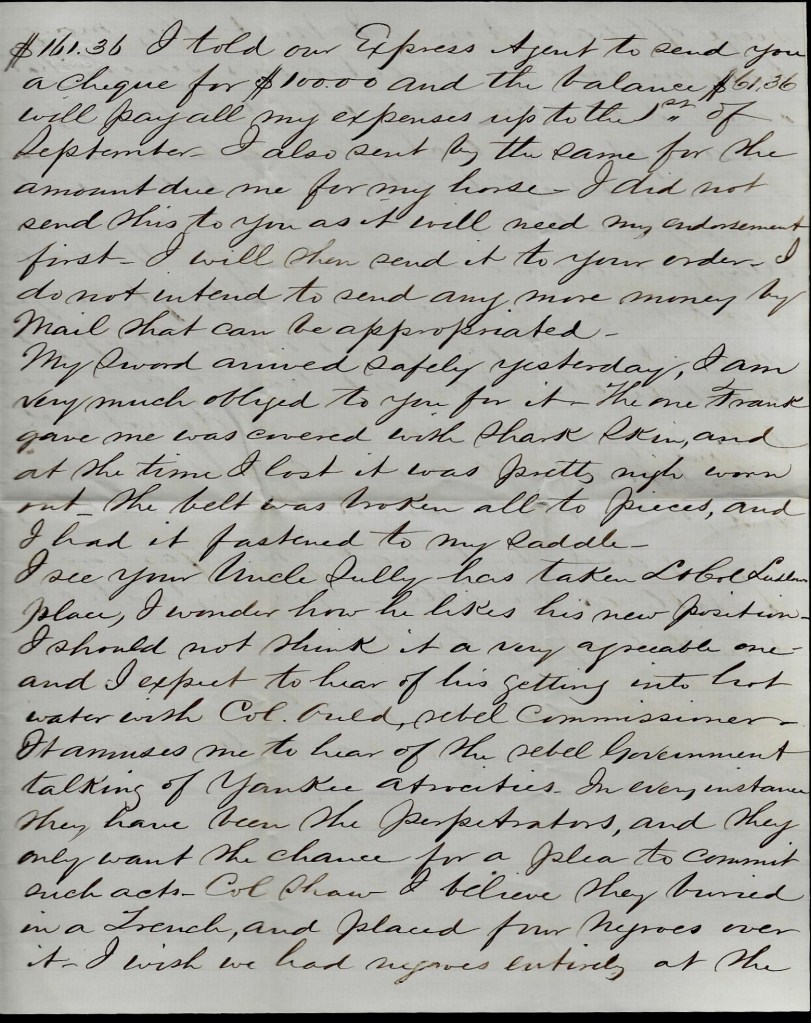 $161.36 I told our Express Agent to send you
a cheque for $100.00 and the balance $61.36
will pay all my expenses up to the 1st of
September— I also sent by the same for the
amount due me for my horse— I did not
send this to you as it will need my endorsement
first— I will then send it to your order— I
do not intend to send any more money by
Mail that can be appropriated—
My Sword arrived safely yesterday, I am
very much obliged to you for it— The one Frank
gave me was covered with Shark Skin, and
at the time I lost it was pretty nigh worn
out— the belt was broken all to pieces, and
I had it fastened to my saddle—
I see your Uncle Sully has taken Lt Col
place, I wonder how he likes his new position—
I should not think it a very agreeable one—
and I expect to hear of his getting into hot
water with Col. Ould, rebel Commissioner—
It amuses me to hear of the rebel Government
talking of Yankee atrocities— In every instance
they have been the perpetrators, and they
only want the chance for a plea to commit
such acts— Col Shaw I believe they buried
in a Trench, and placed four Negroes over
it— I wish we had negroes entirely at the